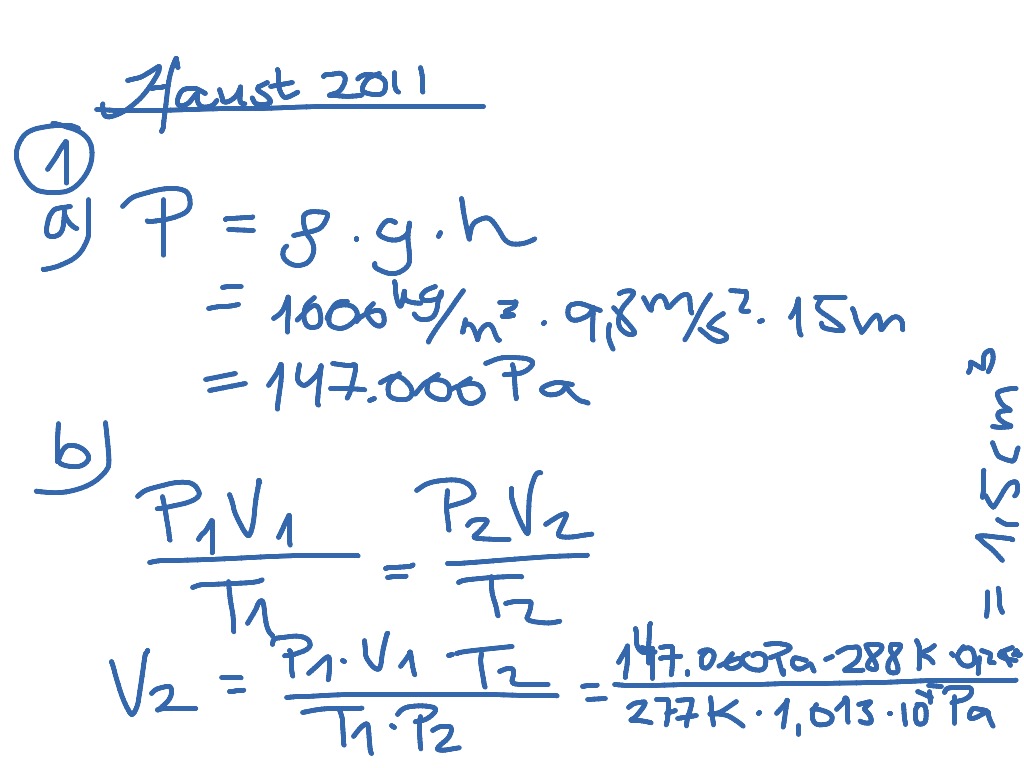 Haust 2011
1
a) P = ρ · g · h
= 1000 kg/m³ · 9,8 m/s² · 15m
= 147.000 Pa
b)
P₁V₁/T₁ = P₂V₂/T₂
V₂ = P₁ · V₁ T₂ / T₁ · P₂ = 147.000Pa · 288 K / 277K · 1,013 · 10 Pa = 1,5 cm³